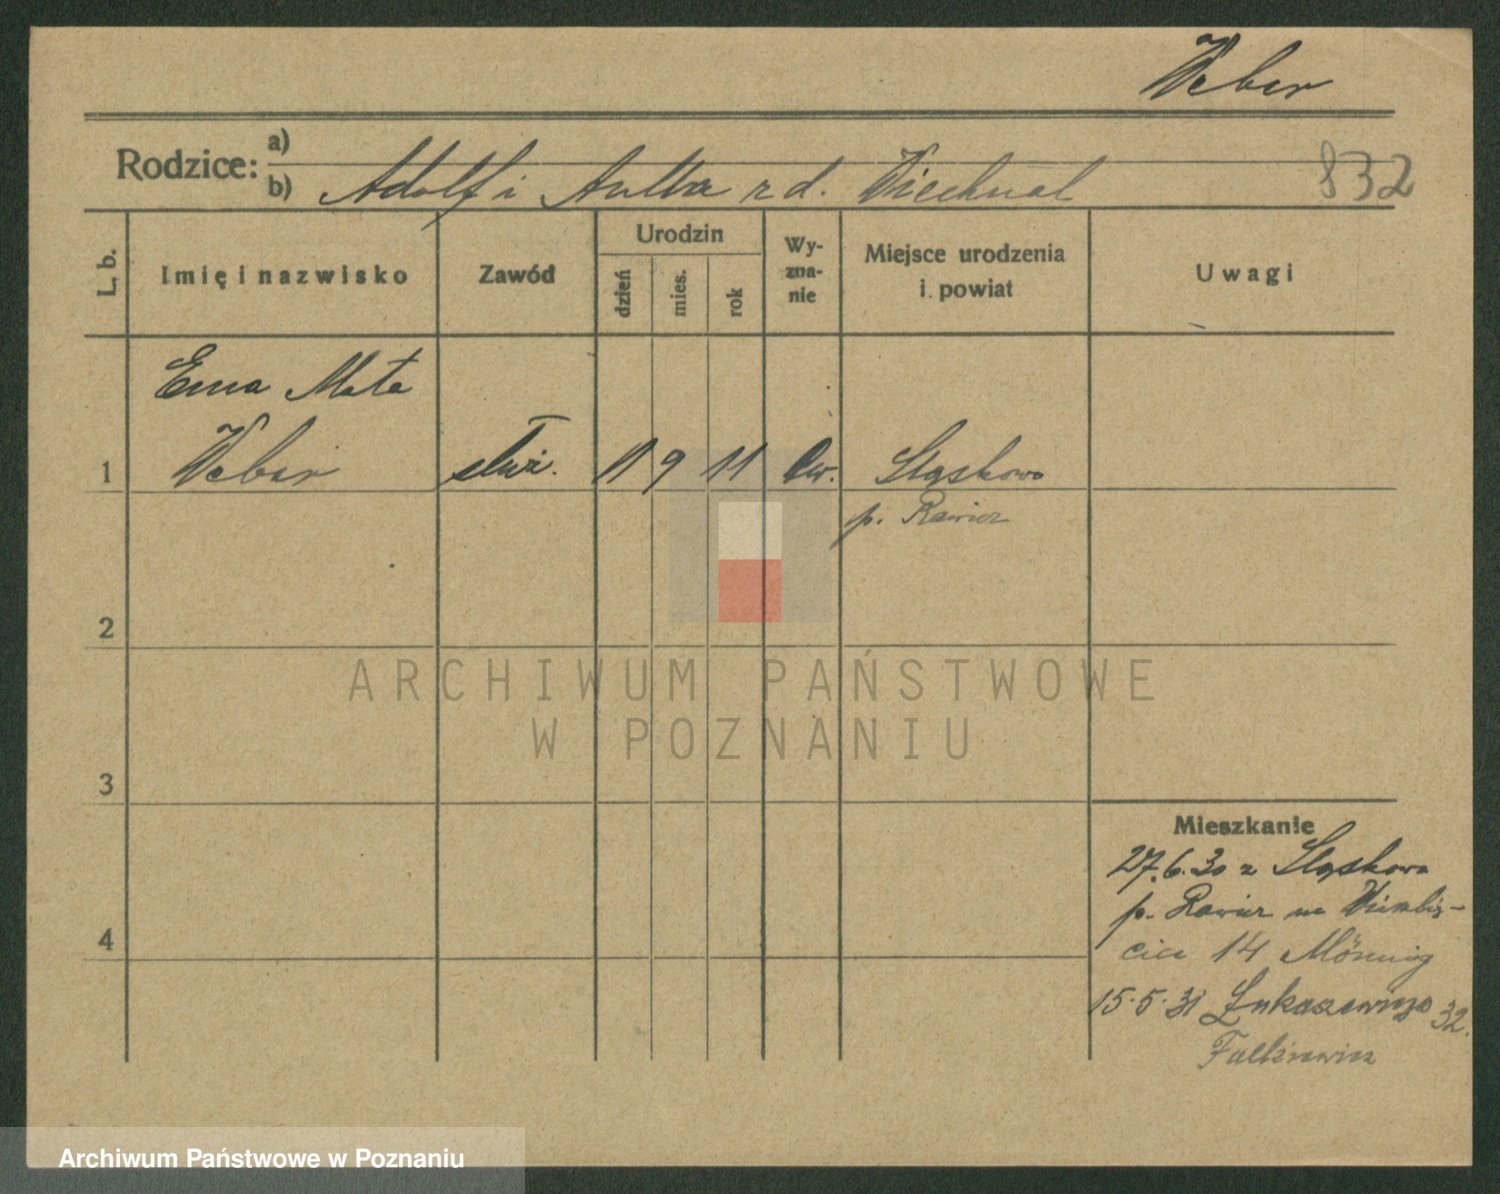 Weber
Rodzice: a)
b) Adolf i z d.
832
L. b.
Imię i nazwisko
Zawód
Urodzin
dzień
mies.
rok
Wy-
zna-
nie
Miejsce urodzenia
i. powiat
Uwagi
Ema Mata
1 Weber służ. 11 9 11 Ew. Sląskowo
p. Rawicz
2
3
4
Mieszkanie
27.6.30 z Sląskowa
p. Rawicz na Wierzbię-
cice 14 Mönnig
15.5.31 Łukaszewicza 32.
Falkiewicz
ARCHIWUM PAŃSTWOWE
W POZNANIU
Archiwum Państwowe w Poznaniu